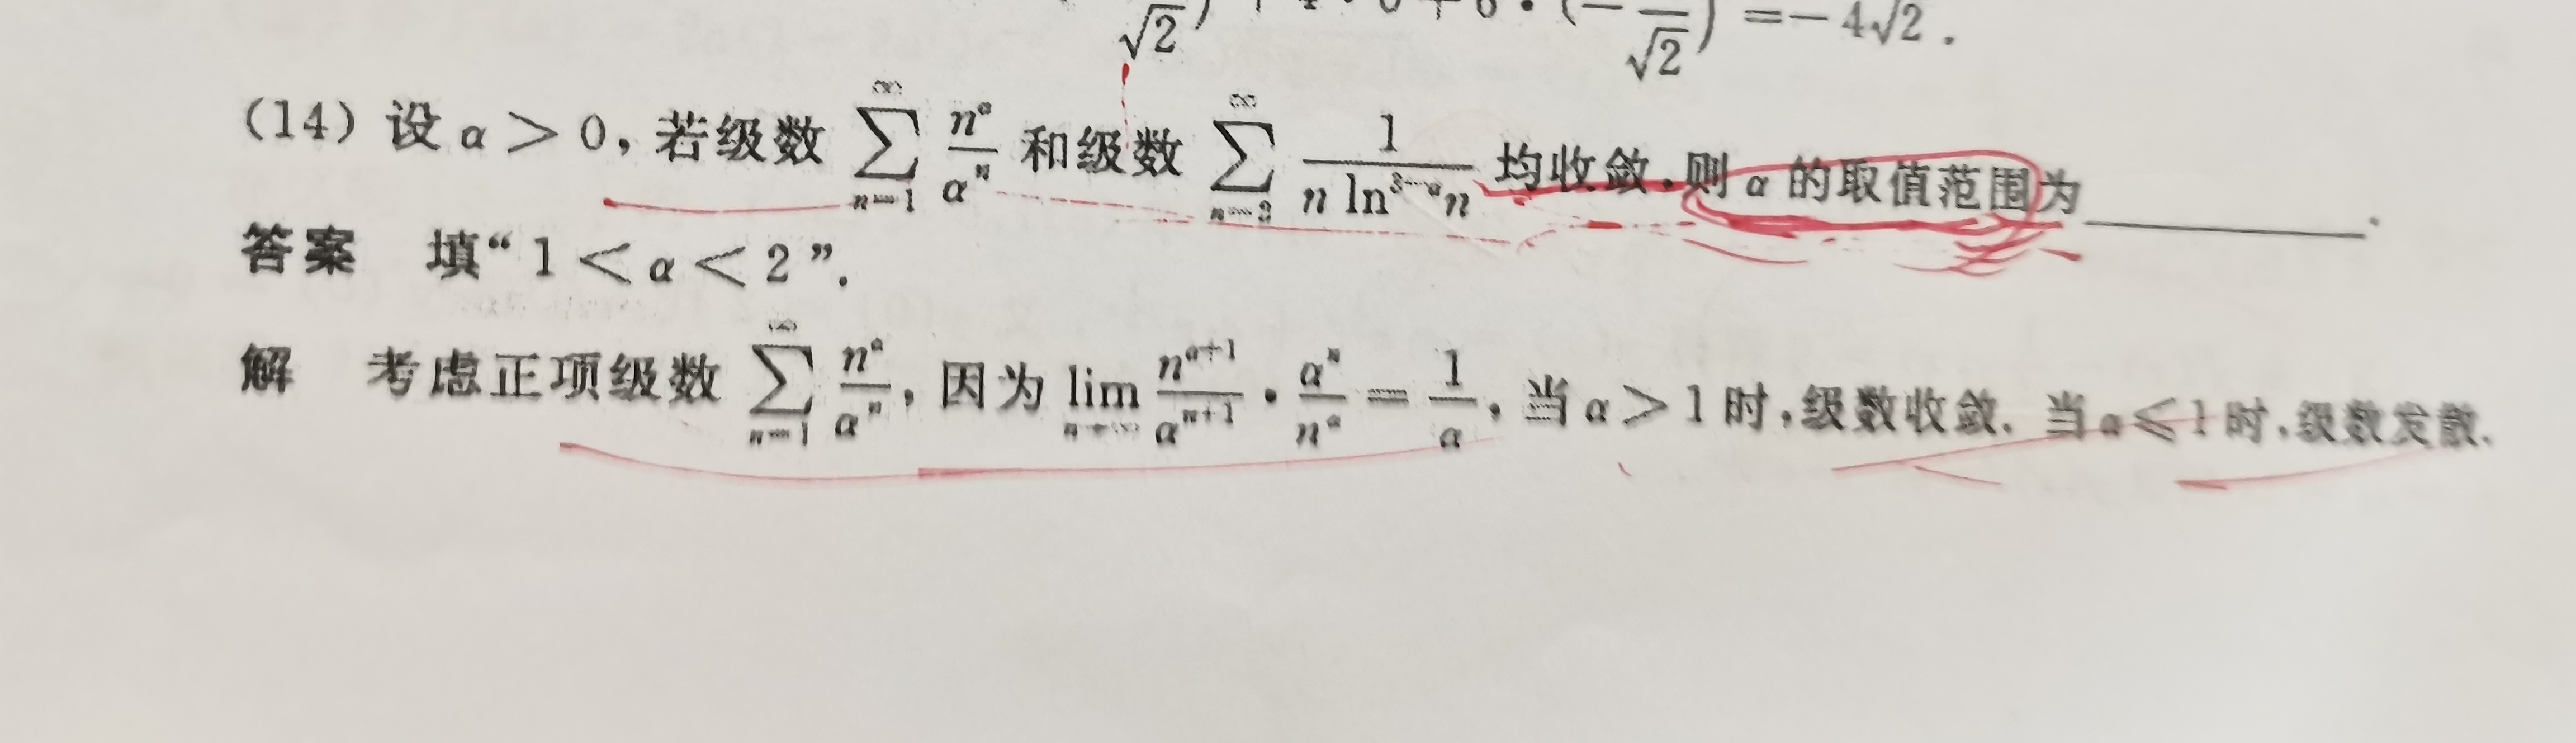 √2 ) + 4 · 0 + 6 · (− √2 ) =−4√2 .
(14) 设 α > 0, 若级数 ∑_{n=1}^{∞} n^α/α^n 和级数 ∑_{n=2}^{∞} 1/(n ln^{3−α} n) 均收敛.则 α 的取值范围为________.
答案 填“1 < α < 2”.
解 考虑正项级数 ∑_{n=1}^{∞} n^α/α^n, 因为 lim_{n→∞} n^{α+1}/α^{n+1} · α^n/n^α = 1/α, 当 α > 1 时,级数收敛. 当 α ⩽ 1 时,级数发散.